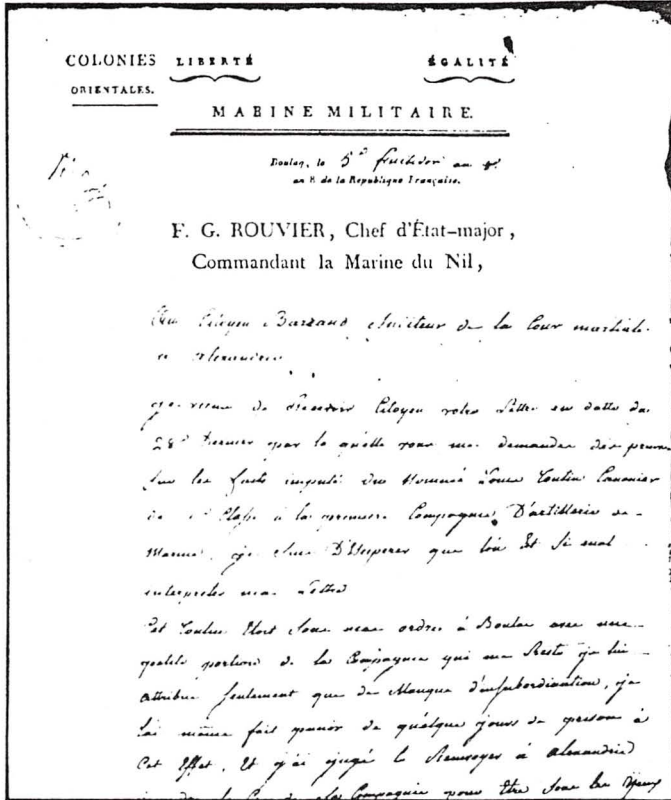 COLONIES
ORIENTALES.
LIBERTÉ
ÉGALITÉ
MARINE MILITAIRE.
Boulaq, le 5 fructidor an 8.
an 8. de la République Française.
F. G. ROUVIER, Chef d'État-major,
Commandant la Marine du Nil,
Au Citoyen Barraud de la Cour martiale
a Alexandrie
je viens de Recevoir Citoyen votre Lettre en datte du
28 dernier par la quelle vous me demandez des
Sur les faits imputé du Nommé Toutin Canonier
de Classe à la premiere Compagnie D'artillerie de
Marine, je que l'on Est Si mal
ma Lettre
Cet Toutin Etoit Sous mes ordres à Boulac avec une
petite portion de la Compagnie qui me Reste je lui
attribue Seulement que de Manque d'insubordination, je
l'ai même fait punir de quelque jours de prison à
Cet Effet, Et j'ai jugé le Renvoyer à alexandrie
de la Compagnie pour être Sous les yeux